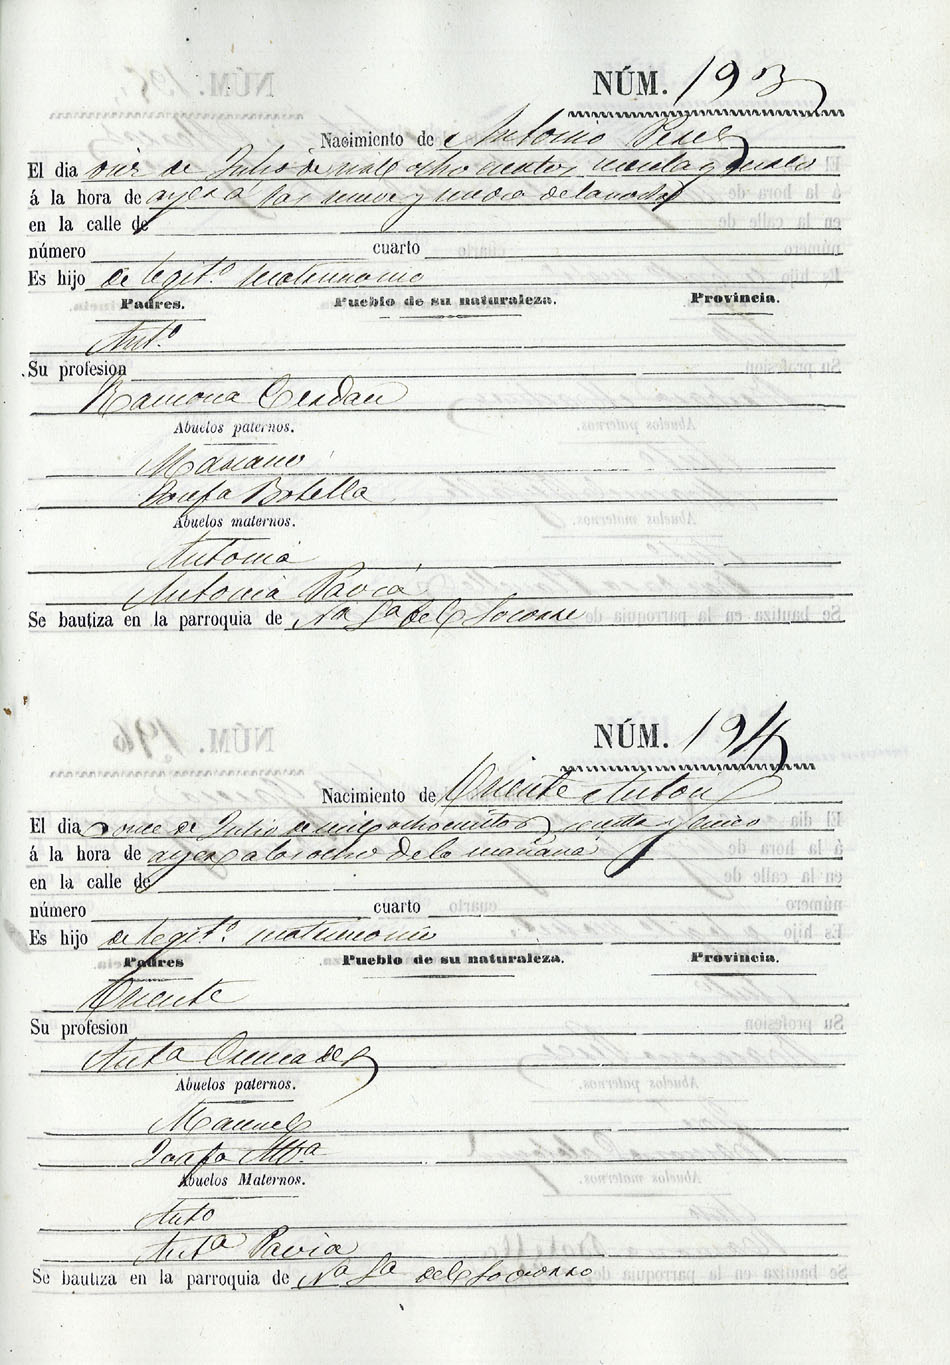 NÚM. 193
Nacimiento de Antonio Perez
El dia de Julio de mil ocho cientos y
á la hora de ayer á las nueve y media de la noche
en la calle de
número cuarto
Es hijo de legit.º matrimonio
Padres. Pueblo de su naturaleza. Provincia.
Ant.º
Su profesion
Ramona Cerdan
Abuelos paternos.
Mariano
Josefa Botella
Abuelos maternos.
Antonia
Antonia Pavia
Se bautiza en la parroquia de Nª Sª del Socorro
NÚM. 194
Nacimiento de Vicente Anton
El dia once de Julio de mil ochocientos y
á la hora de ayer a las ocho de la mañana
en la calle de
número cuarto
Es hijo de legit.º matrimonio
Padres Pueblo de su naturaleza. Provincia.
Vicente
Su profesion
Antª
Abuelos paternos.
Manuel
Josefa
Abuelos Maternos.
Anto
Antª Pavia
Se bautiza en la parroquia de Nª Sª del Socorro